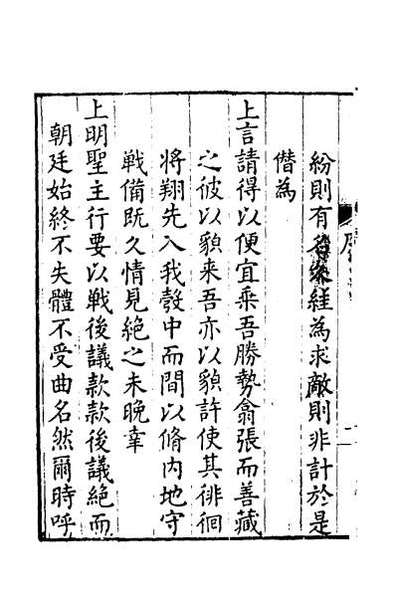 紛則有後來經為求敵則非計於是
僭為
上言請得以便宜乘吾勝勢翕張而善藏
之彼以貌來吾亦以貌許使其徘徊
將翔先入我彀中而間以脩內地守
戰備既久情見絕之未晚幸
上明聖主行要以戰後議款款後議絕而
朝廷始終不失體不受曲名然爾時呼